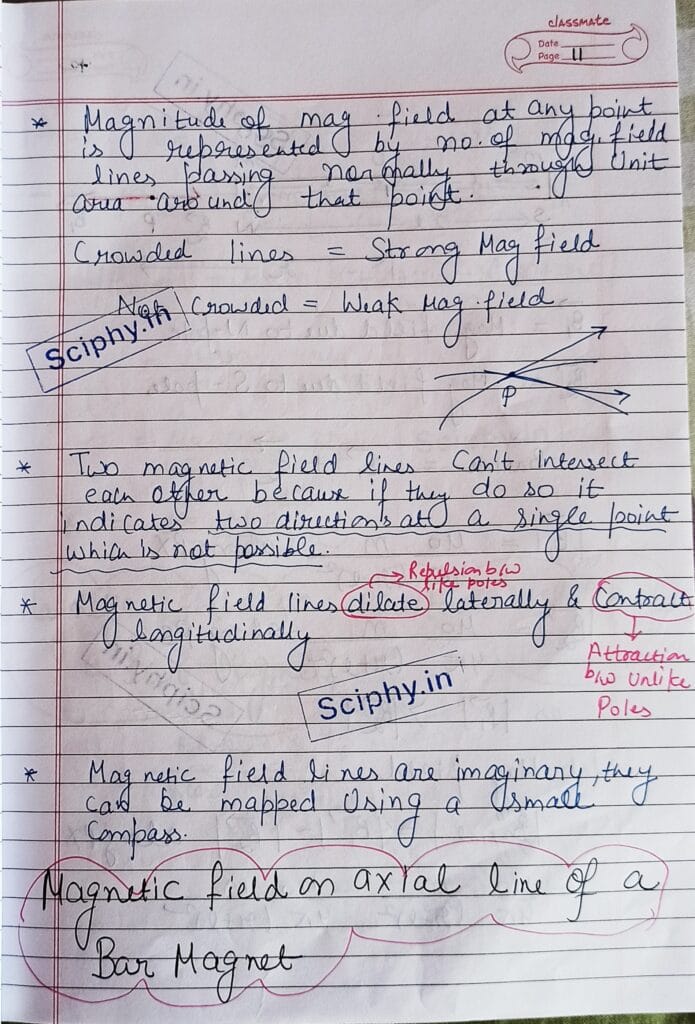 classmate
Date
Page 11
* Magnitude of mag. field at any point
is represented by no. of mag. field
lines passing normally through Unit
area around that point.
Crowded lines = Strong Mag field
Not Crowded = Weak Mag. field
Sciphy.in
P
* Two magnetic field lines Can't Intersect
each other because if they do so it
indicates two directions at a single point
which is not possible.
Repulsion b/w
like poles
* Magnetic field lines dilate laterally & Contract
longitudinally
Attraction
b/w Unlike
Poles
Sciphy.in
* Magnetic field lines are imaginary, they
can be mapped Using a small
Compass.
Magnetic field on axial line of a
Bar Magnet